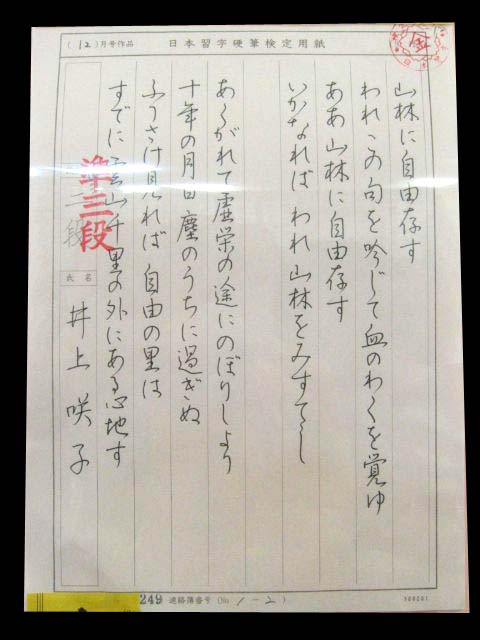 (12)月号作品
日本習字硬筆検定用紙
金
山林に自由存す
われこの句を吟じて血のわくを覚ゆ
ああ山林に自由存す
いかなればわれ山林をみすてし
あくがれて虚栄の途にのぼりしより
十年の月日塵のうちに過ぎぬ
ふりさけ見れば自由の里は
すでに雲山千里の外にある心地す
準三段
段
氏名
井上咲子
249 連絡簿番号 (No. 1-2)